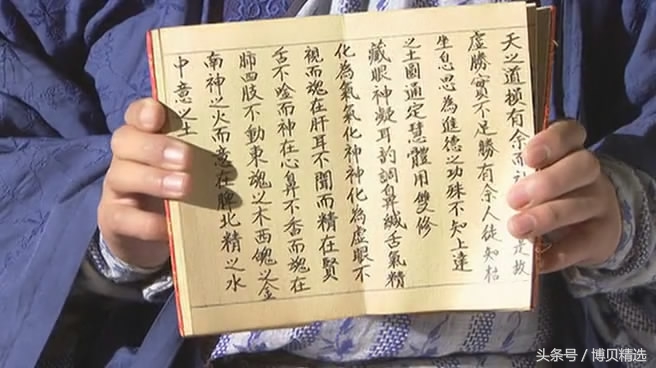 天之道損有余而 是故
虛勝實不足勝有余人徒知枯
坐息思為進德之功殊不知上達
之土圖通定慧體用雙修
藏眼神凝耳韵調鼻緘舌氣精
化為氣氣化神神化為虛眼不
視而魂在肝耳不聞而精在賢
舌不唫而神在心鼻不香而魂在
肺四肢不動東魂之木西魄之金
南神之火而意在脾北精之水
中意之土
头条号 / 博贝精选